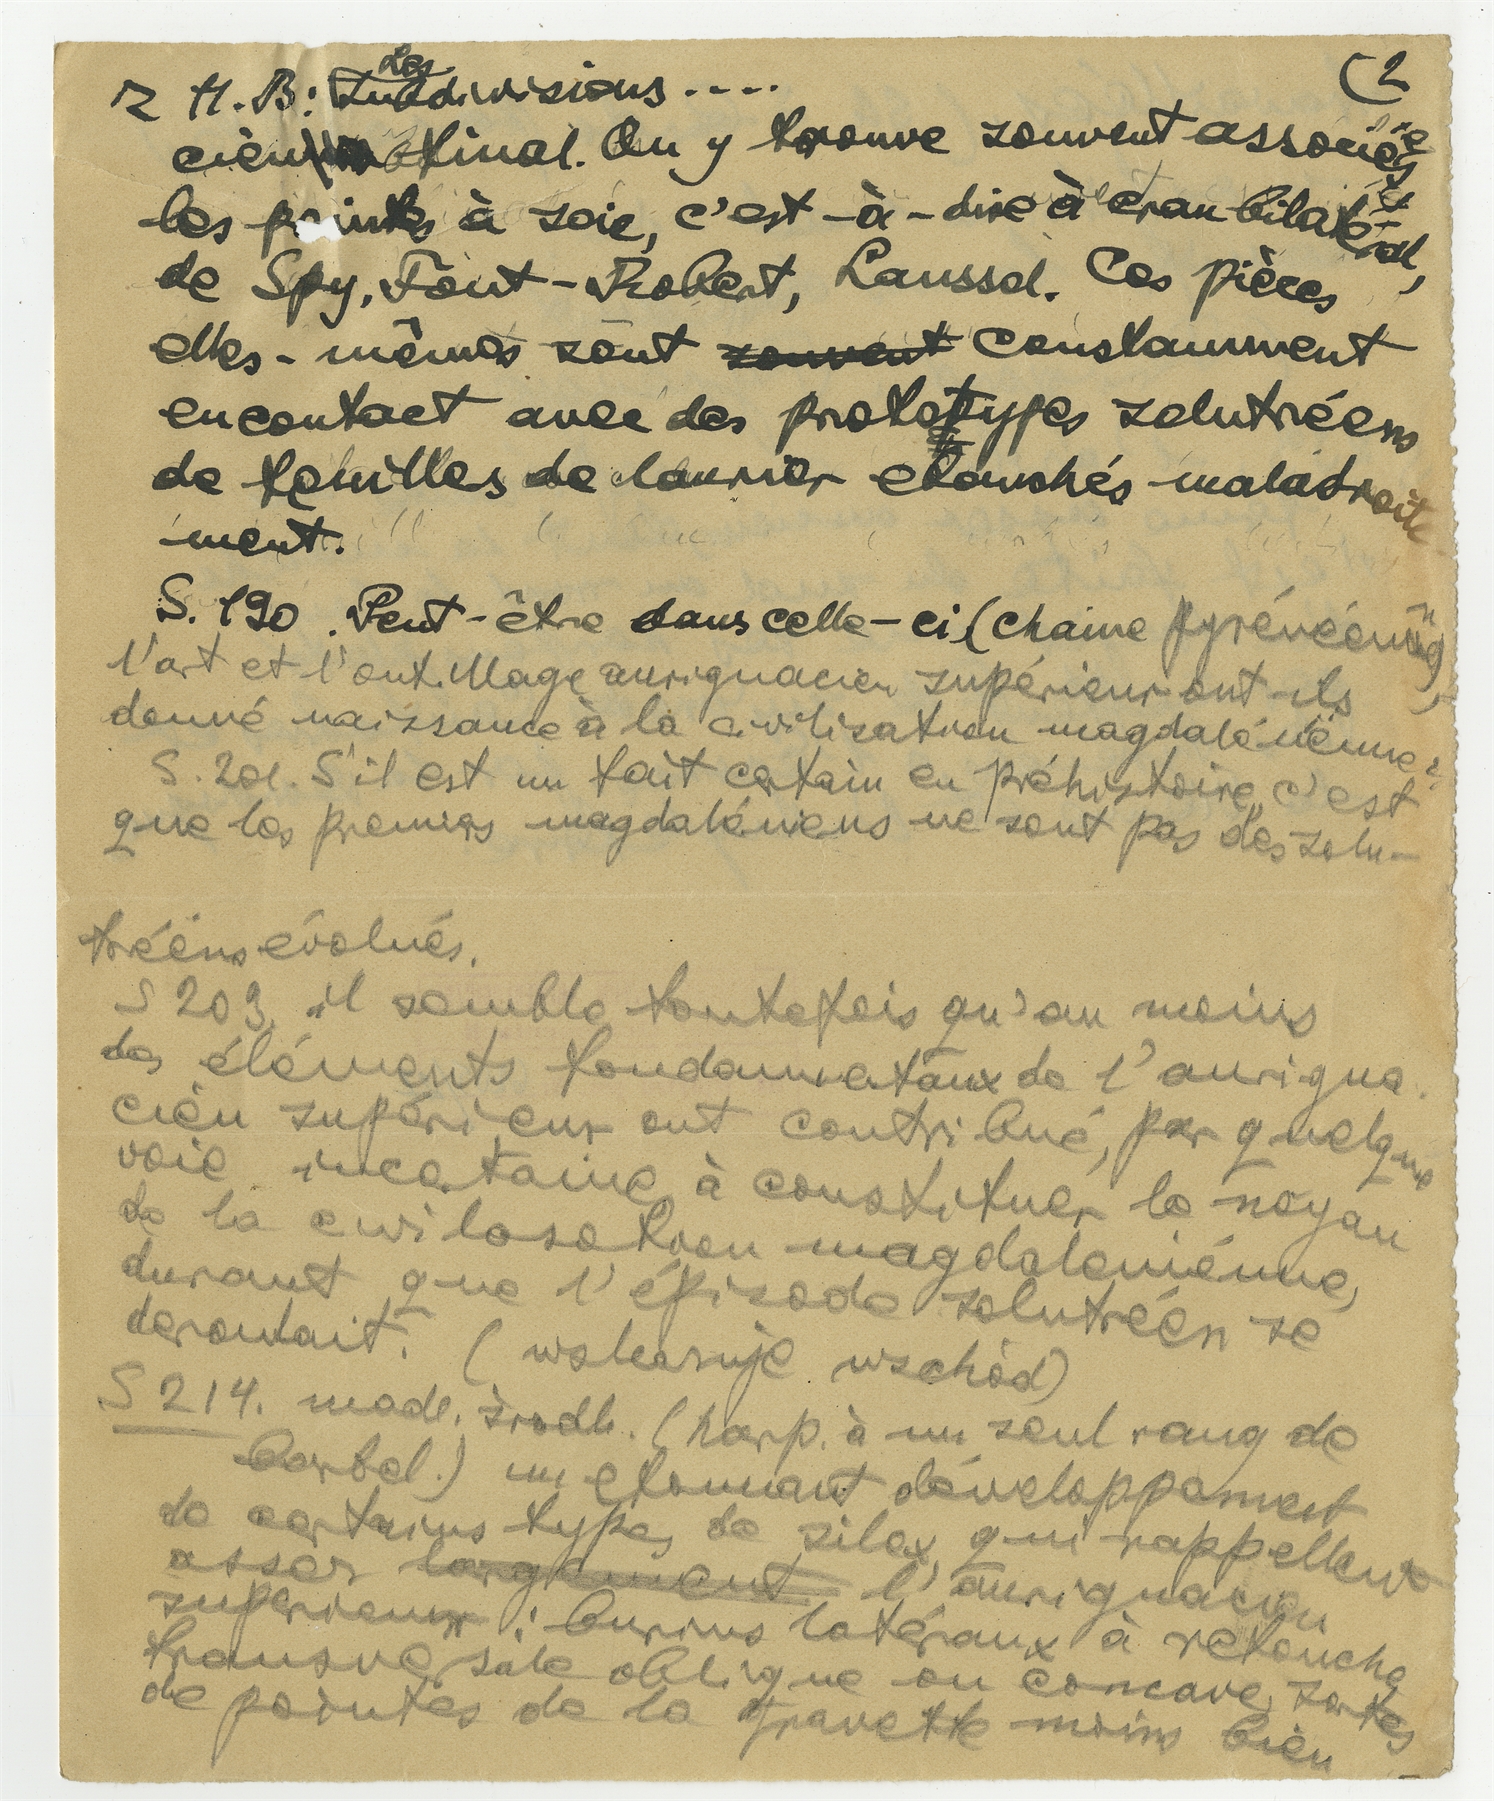 z H.B: Les Subdivisions ....
(2
cien final. On y trouve souvent associées
les pointes à soie, c'est-à-dire à cran bilatéral,
de Spy, Font-Robert, Laussel. Ces pièces
elles-mêmes sont souvent constamment
en contact avec des prototypes solutréens
de feuilles de laurier etouchés maladroite-
ment.
S. 190. Peut-être dans celle-ci (chaine pyrénéenne),
l'art et l'outillage aurignacien supérieur ont-ils
donné naissance à la civilisation magdalénienne?
S. 201. S'il est un fait certain en préhistoire, c'est
que les premiers magdaléniens ne sont pas des solu-
tréens évolués.
S 203. il semble toutefois qu'au moins
des éléments fondamentaux de l'aurigna
cien supérieur ont contribué, par quelque
voie incertaine à constituer le noyau
de la civilosation magdaleniénne,
durant que l'épisode solutréen se
deroulait. (wskazuje wschód)
S 214. madl. środk. (harp. à un seul rang de
barbel.) un etonnant développement
de certains types de silex, qui rappellent
assez largement l'aurignacien
supérieur: burins latéraux à retouche
transversale oblique ou concave, sortes
de pointes de la gravette moins bien